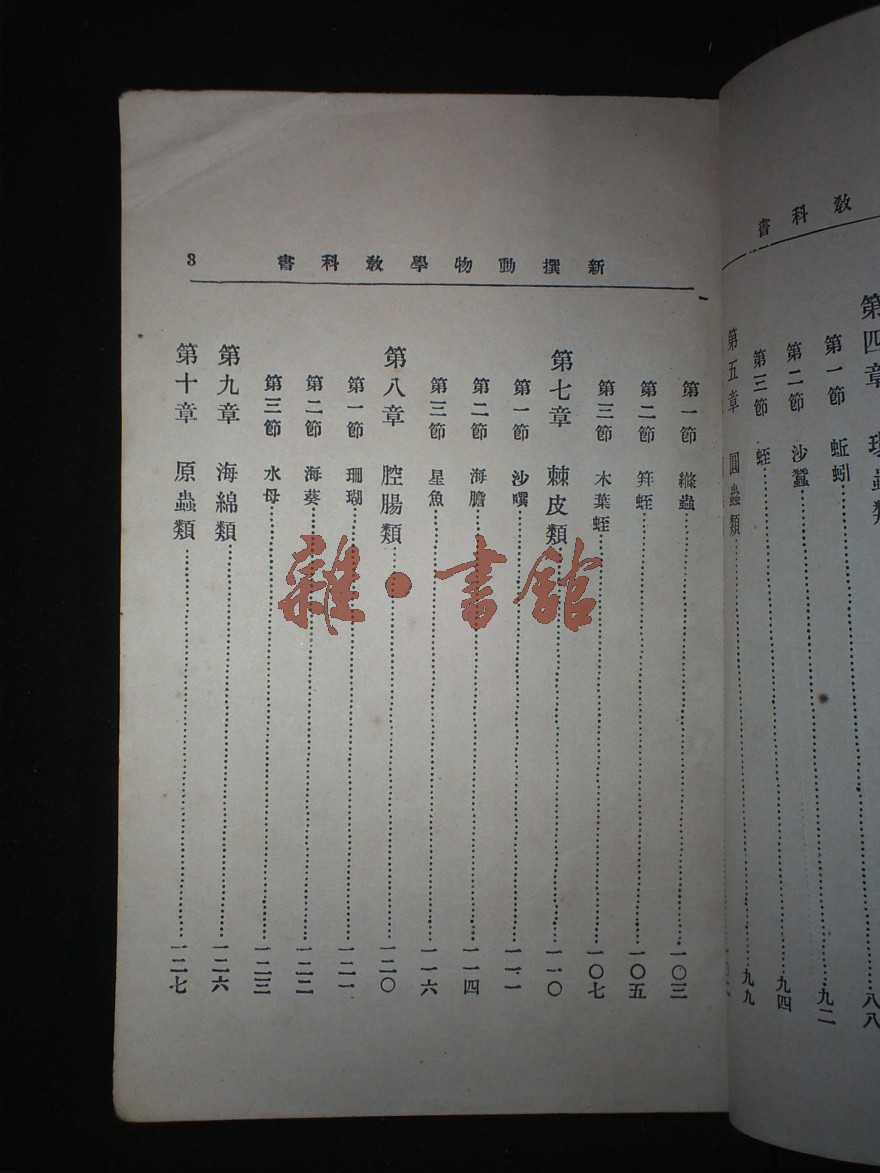 教科書
第四章
八八
第一節 蚯蚓 九二
第二節 沙蠶 九四
第三節 蛭 九九
第五章 圓蟲類
新撰動物學教科書 3
第一節 縧蟲 一〇三
第二節 筓蛭 一〇五
第三節 木葉蛭 一〇七
第七章 棘皮類 一一〇
第一節 沙噀 一一一
第二節 海膽 一一四
第三節 星魚 一一六
第八章 腔腸類 一二〇
第一節 珊瑚 一二一
第二節 海葵 一二二
第三節 水母 一二三
第九章 海綿類 一二六
第十章 原蟲類 一二七
雜·書館